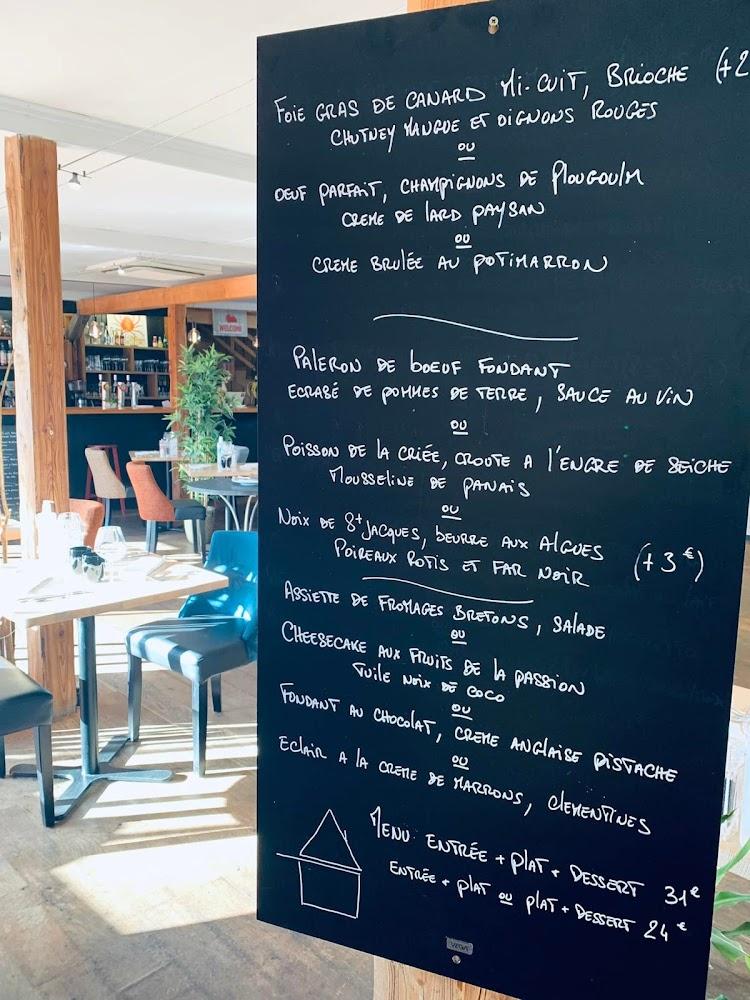 FOIE GRAS DE CANARD MI-CUIT, BRIOCHE (+2
CHUTNEY MANGUE ET OIGNONS ROUGES
OU
OEUF PARFAIT, CHAMPIGNONS DE PLOUGOULM
CREME DE LARD PAYSAN
OU
CREME BRULÉE AU POTIMARRON
PALERON DE BOEUF FONDANT
ECRASÉ DE POMMES DE TERRE, SAUCE AU VIN
OU
POISSON DE LA CRIÉE, CROUTE A L'ENCRE DE SEICHE
MOUSSELINE DE PANAIS
OU
NOIX DE St JACQUES, BEURRE AUX ALGUES
POIREAUX ROTIS ET FAR NOIR (+3€)
ASSIETTE DE FROMAGES BRETONS, SALADE
OU
CHEESECAKE AUX FRUITS DE LA PASSION
TUILE NOIX DE COCO
OU
FONDANT AU CHOCOLAT, CREME ANGLAISE PISTACHE
OU
ECLAIR A LA CREME DE MARRONS, CLEMENTINES
MENU: ENTRÉE + PLAT + DESSERT 31€
ENTRÉE + PLAT OU PLAT + DESSERT 24€
WELCOME